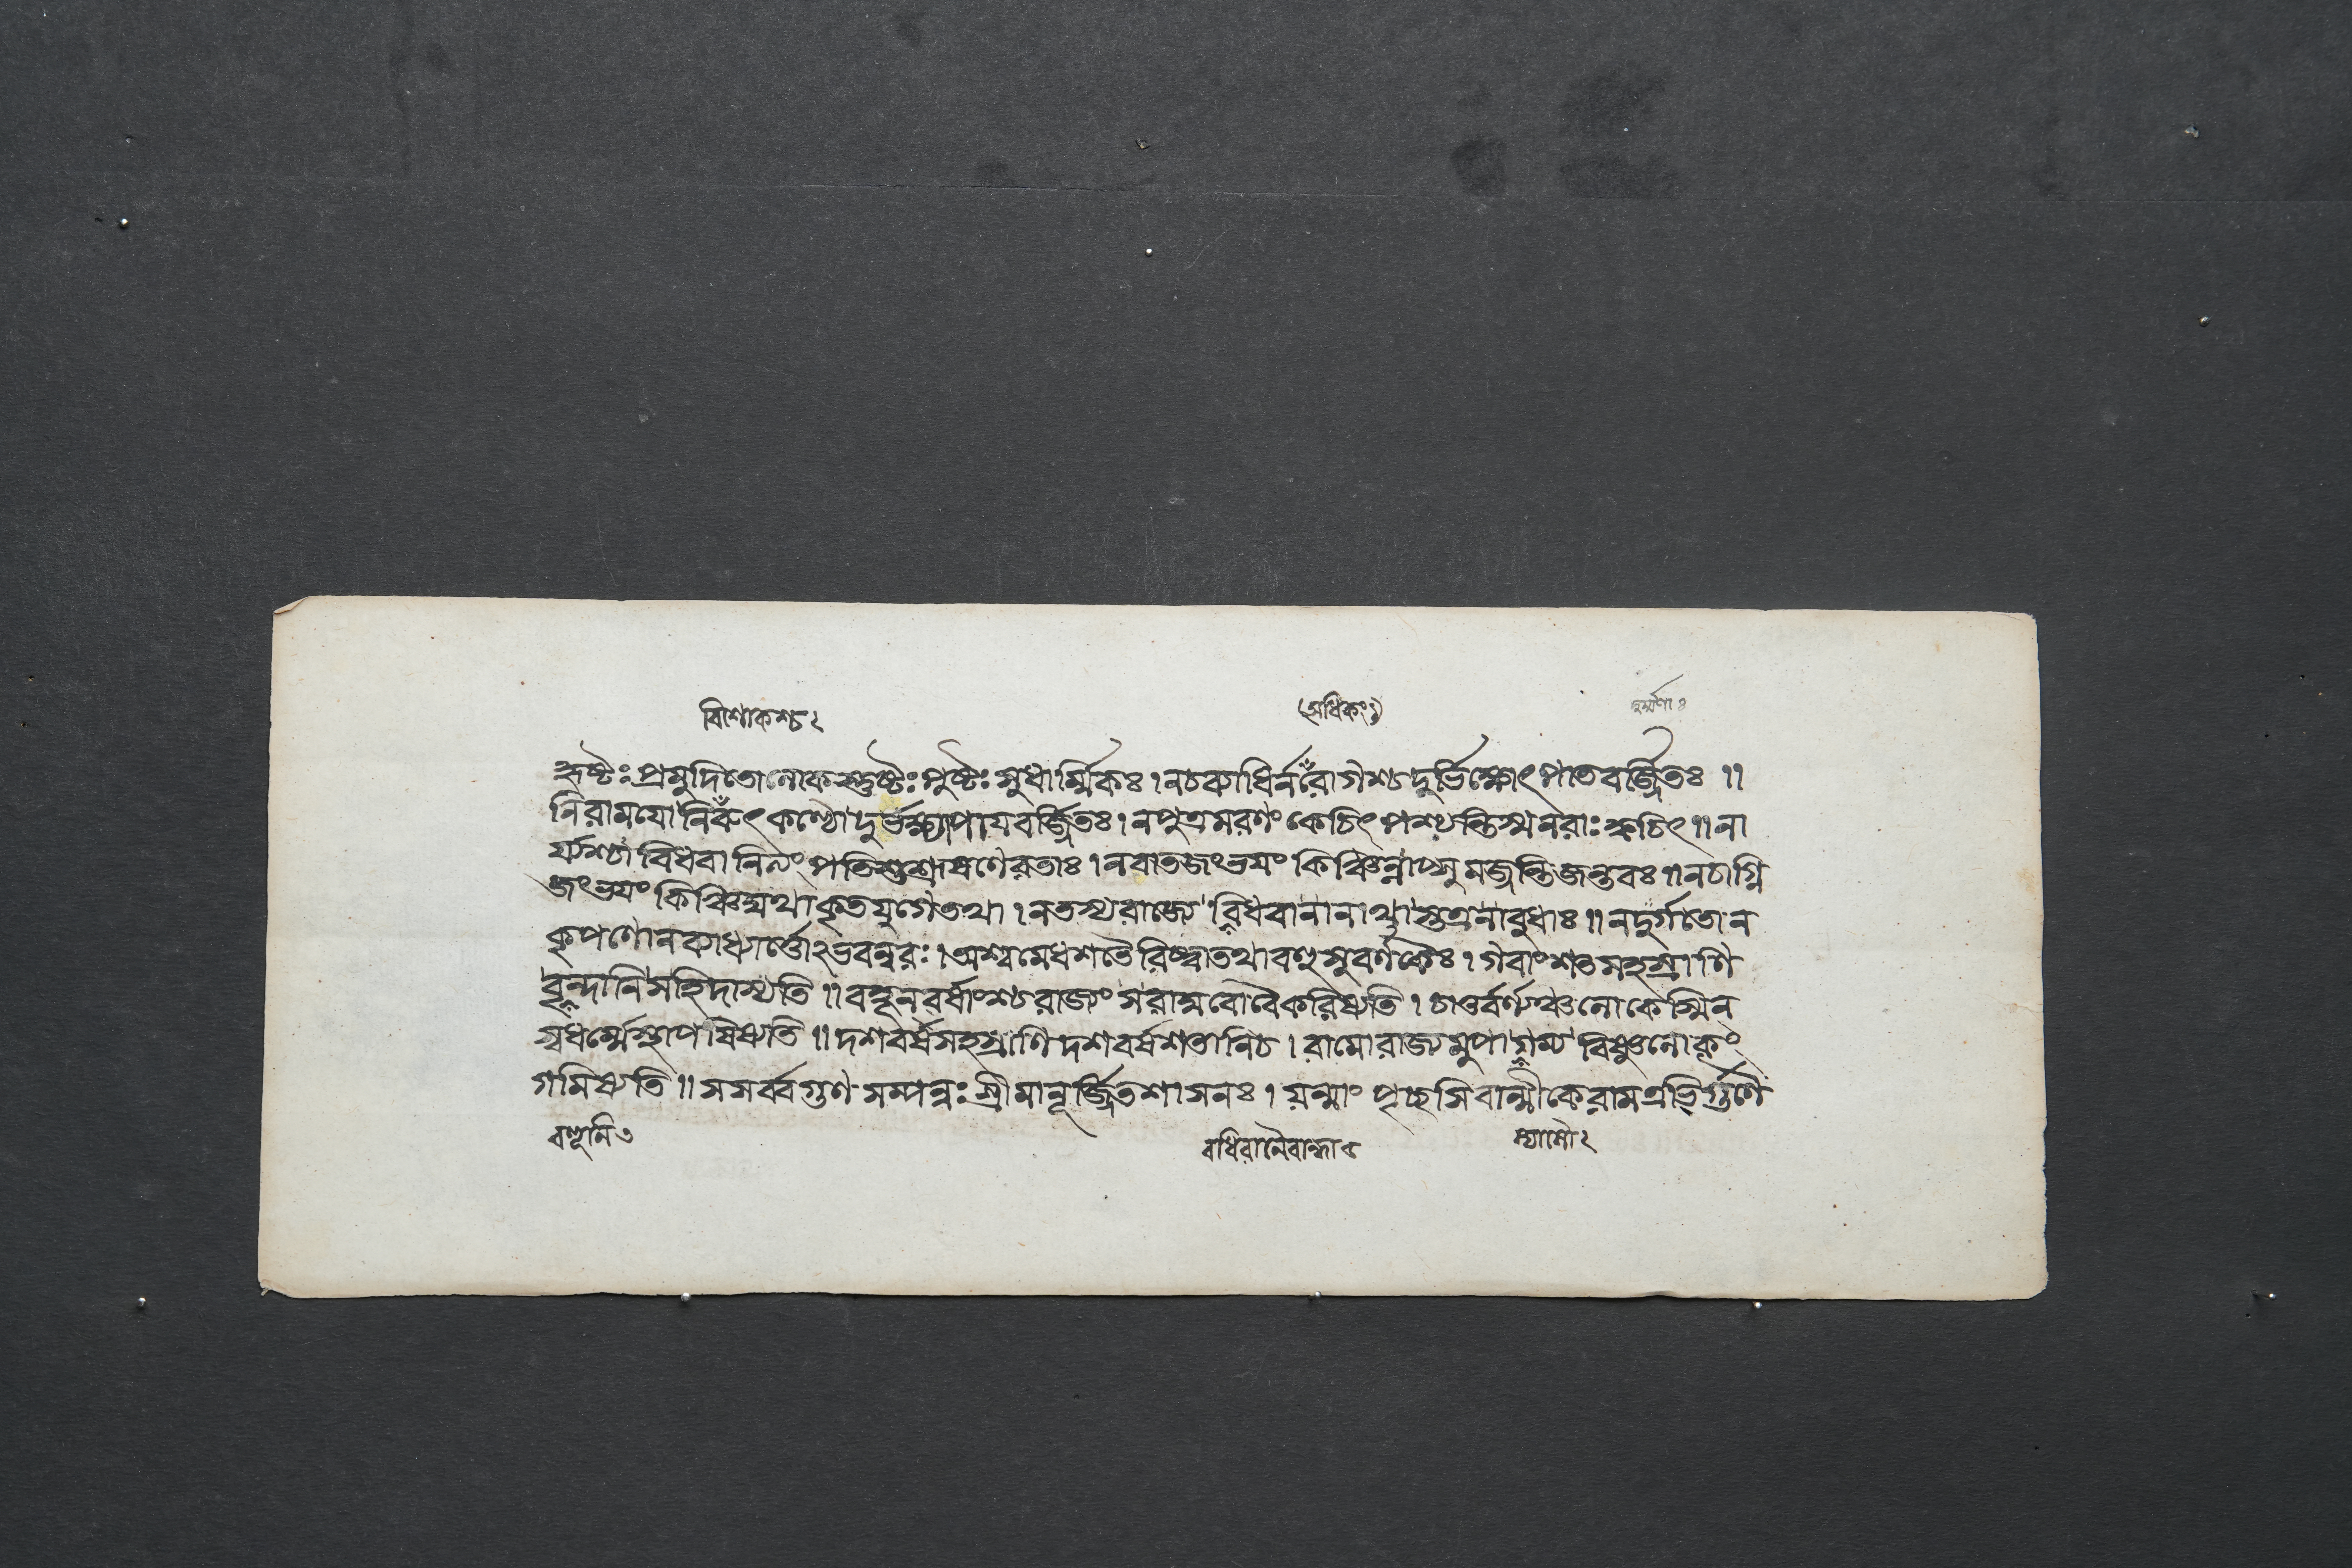 বিশোকশ্চ২
(অধিকঃ১)
দুর্ম্মর্ণাঃ
হৃষ্টঃ প্রমুদিতোলোকস্তুষ্টঃ পুষ্টঃ সুধার্ম্মিকঃ । নচব্যাধির্নরোগশ্চ দুর্ভিক্ষোৎপাতবর্জ্জিতঃ ॥
নিরাময়োনিরুৎকণ্ঠো দুর্ভক্ষ্যাপায়বর্জ্জিতঃ । নপুত্রমরণং কেচিৎ পশ্যন্তিস্মনরাঃ ক্বচিৎ ॥ না
র্য্যশ্চাবিধবানিত্যং পতিশুশ্রূষণেরতাঃ । নবাতজংভয়ং কিঞ্চিন্নাপ্সুমজ্জন্তিজন্তবঃ ॥ নচাগ্নি
জংভয়ং কিঞ্চিদ্যথাকৃতযুগেতথা । নতস্যরাজ্যে বিধবানানাথাস্তত্রনাবুধাঃ ॥ নদুর্গতোন
কৃপণোনব্যাধ্যার্ত্তোঽভবন্নরঃ । অশ্বমেধশতৈরিষ্ট্বাতথাবহুসুবর্ণকৈঃ । গবাংশতসহস্রাণি
বৃন্দানিসহিদাস্যতি ॥ বহূনবর্ষাংশ্চরাজ্যং সরাঘবোবৈকরিষ্যতি । চাতুর্বর্ণ্যঞ্চলোকেস্মিন
স্বধর্ম্মেস্থাপয়িষ্যতি ॥ দশবর্ষসহস্রাণি দশবর্ষশতানিচ । রামোরাজ্যমুপাগম্য বিষ্ণুলোকং
গমিষ্যতি ॥ সসর্ব্বগুণসম্পন্নঃ শ্রীমানূর্জ্জিতশাসনঃ । যন্মাং পৃচ্ছসিবাল্মীকেরামএভির্গুণৈ
বহূনি৩
বধিরানৈবান্ধা৫